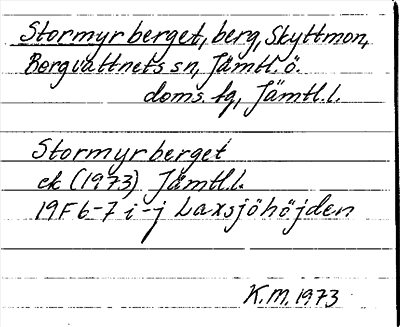 Stormyrberget, berg, Skyttmon,
Borgvattnets sn, Jämtl. ö.
doms. tg, Jämtl. l.
Stormyrberget
ek (1973) Jämtl. l.
19F 6-7 i-j Laxsjöhöjden
K.M. 1973